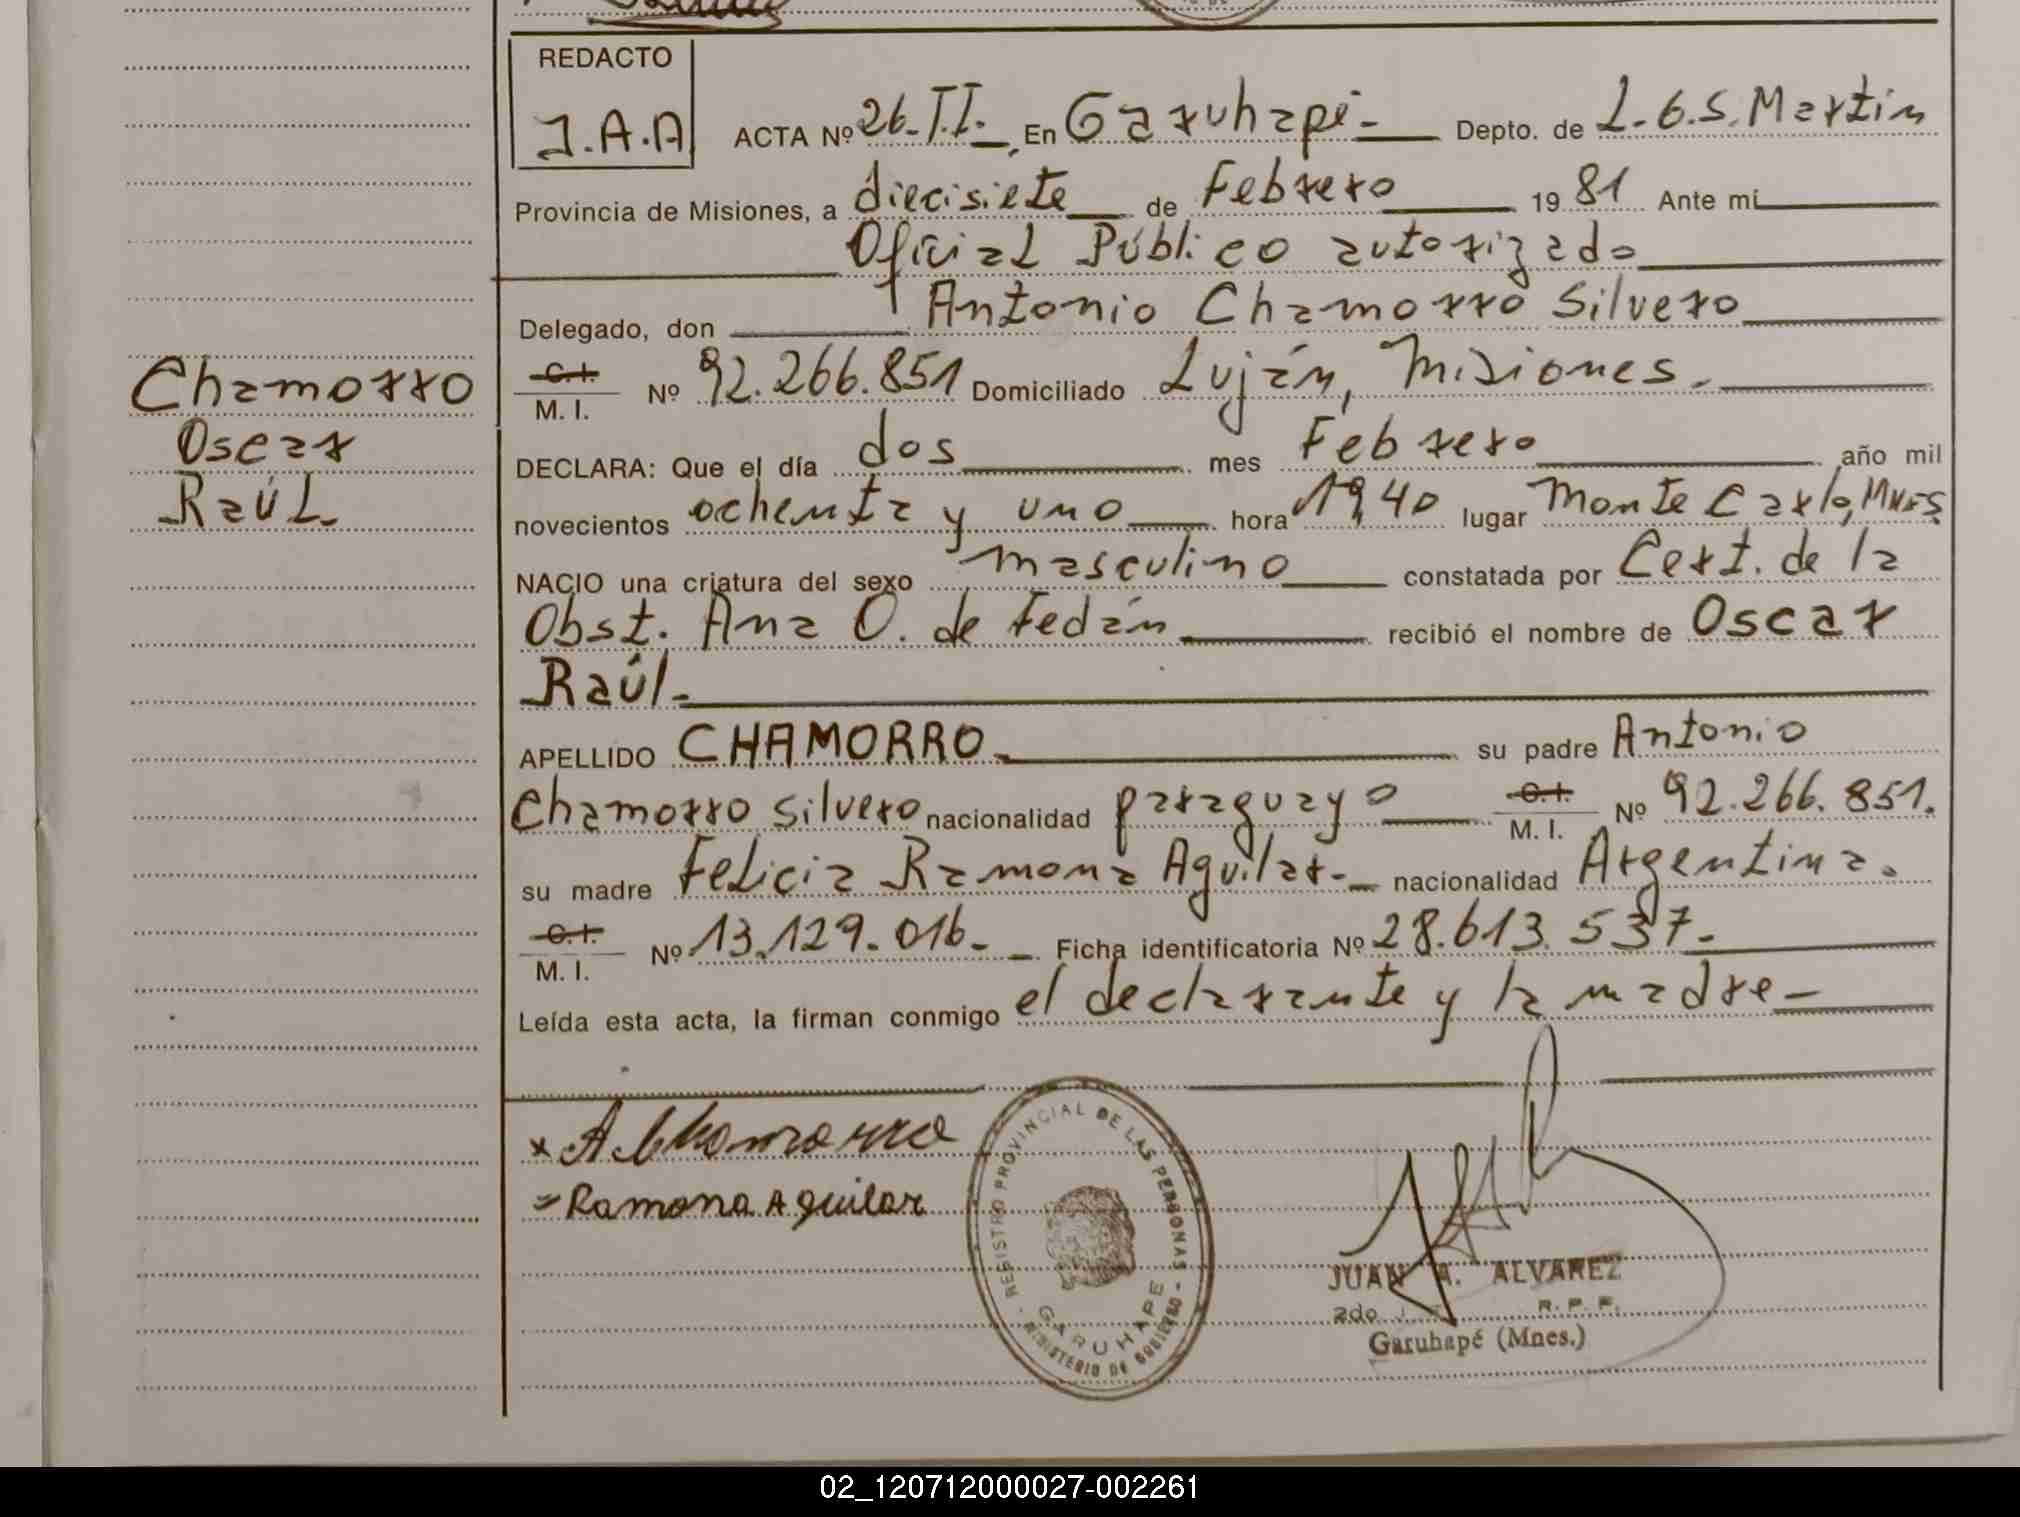 REDACTO
J.A.A ACTA Nº 26-T.I. En Garuhapé- Depto. de L.G.S. Martín
Provincia de Misiones, a diecisiete de Febrero 1981 Ante mí
Oficial Público autorizado
Delegado, don Antonio Chamorro Silvero
C.I. M. I. Nº 92.266.851 Domiciliado Luján, Misiones.
Chamorro
Oscar
Raúl
DECLARA: Que el día dos mes Febrero año mil
novecientos ochenta y uno hora 19,40 lugar Monte Carlo, Mnes
NACIO una criatura del sexo masculino constatada por Cert. de la
Obst. Ana O. de Fedán recibió el nombre de Oscar
Raúl-
APELLIDO CHAMORRO- su padre Antonio
Chamorro Silvero nacionalidad paraguayo C.I. M. I. Nº 92.266.851.
su madre Felicia Ramona Aguilar- nacionalidad Argentina.
C.I. M. I. Nº 13.129.016- Ficha identificatoria Nº 28.613.537-
Leída esta acta, la firman conmigo el declarante y la madre-
x A. Chamorro
= Ramona Aguilar
REGISTRO PROVINCIAL DE LAS PERSONAS - MINISTERIO DE GOBIERNO -
GARUHAPE
JUAN A. ALVAREZ
2do. R. P. P.
Garuhapé (Mnes.)
02_120712000027-002261